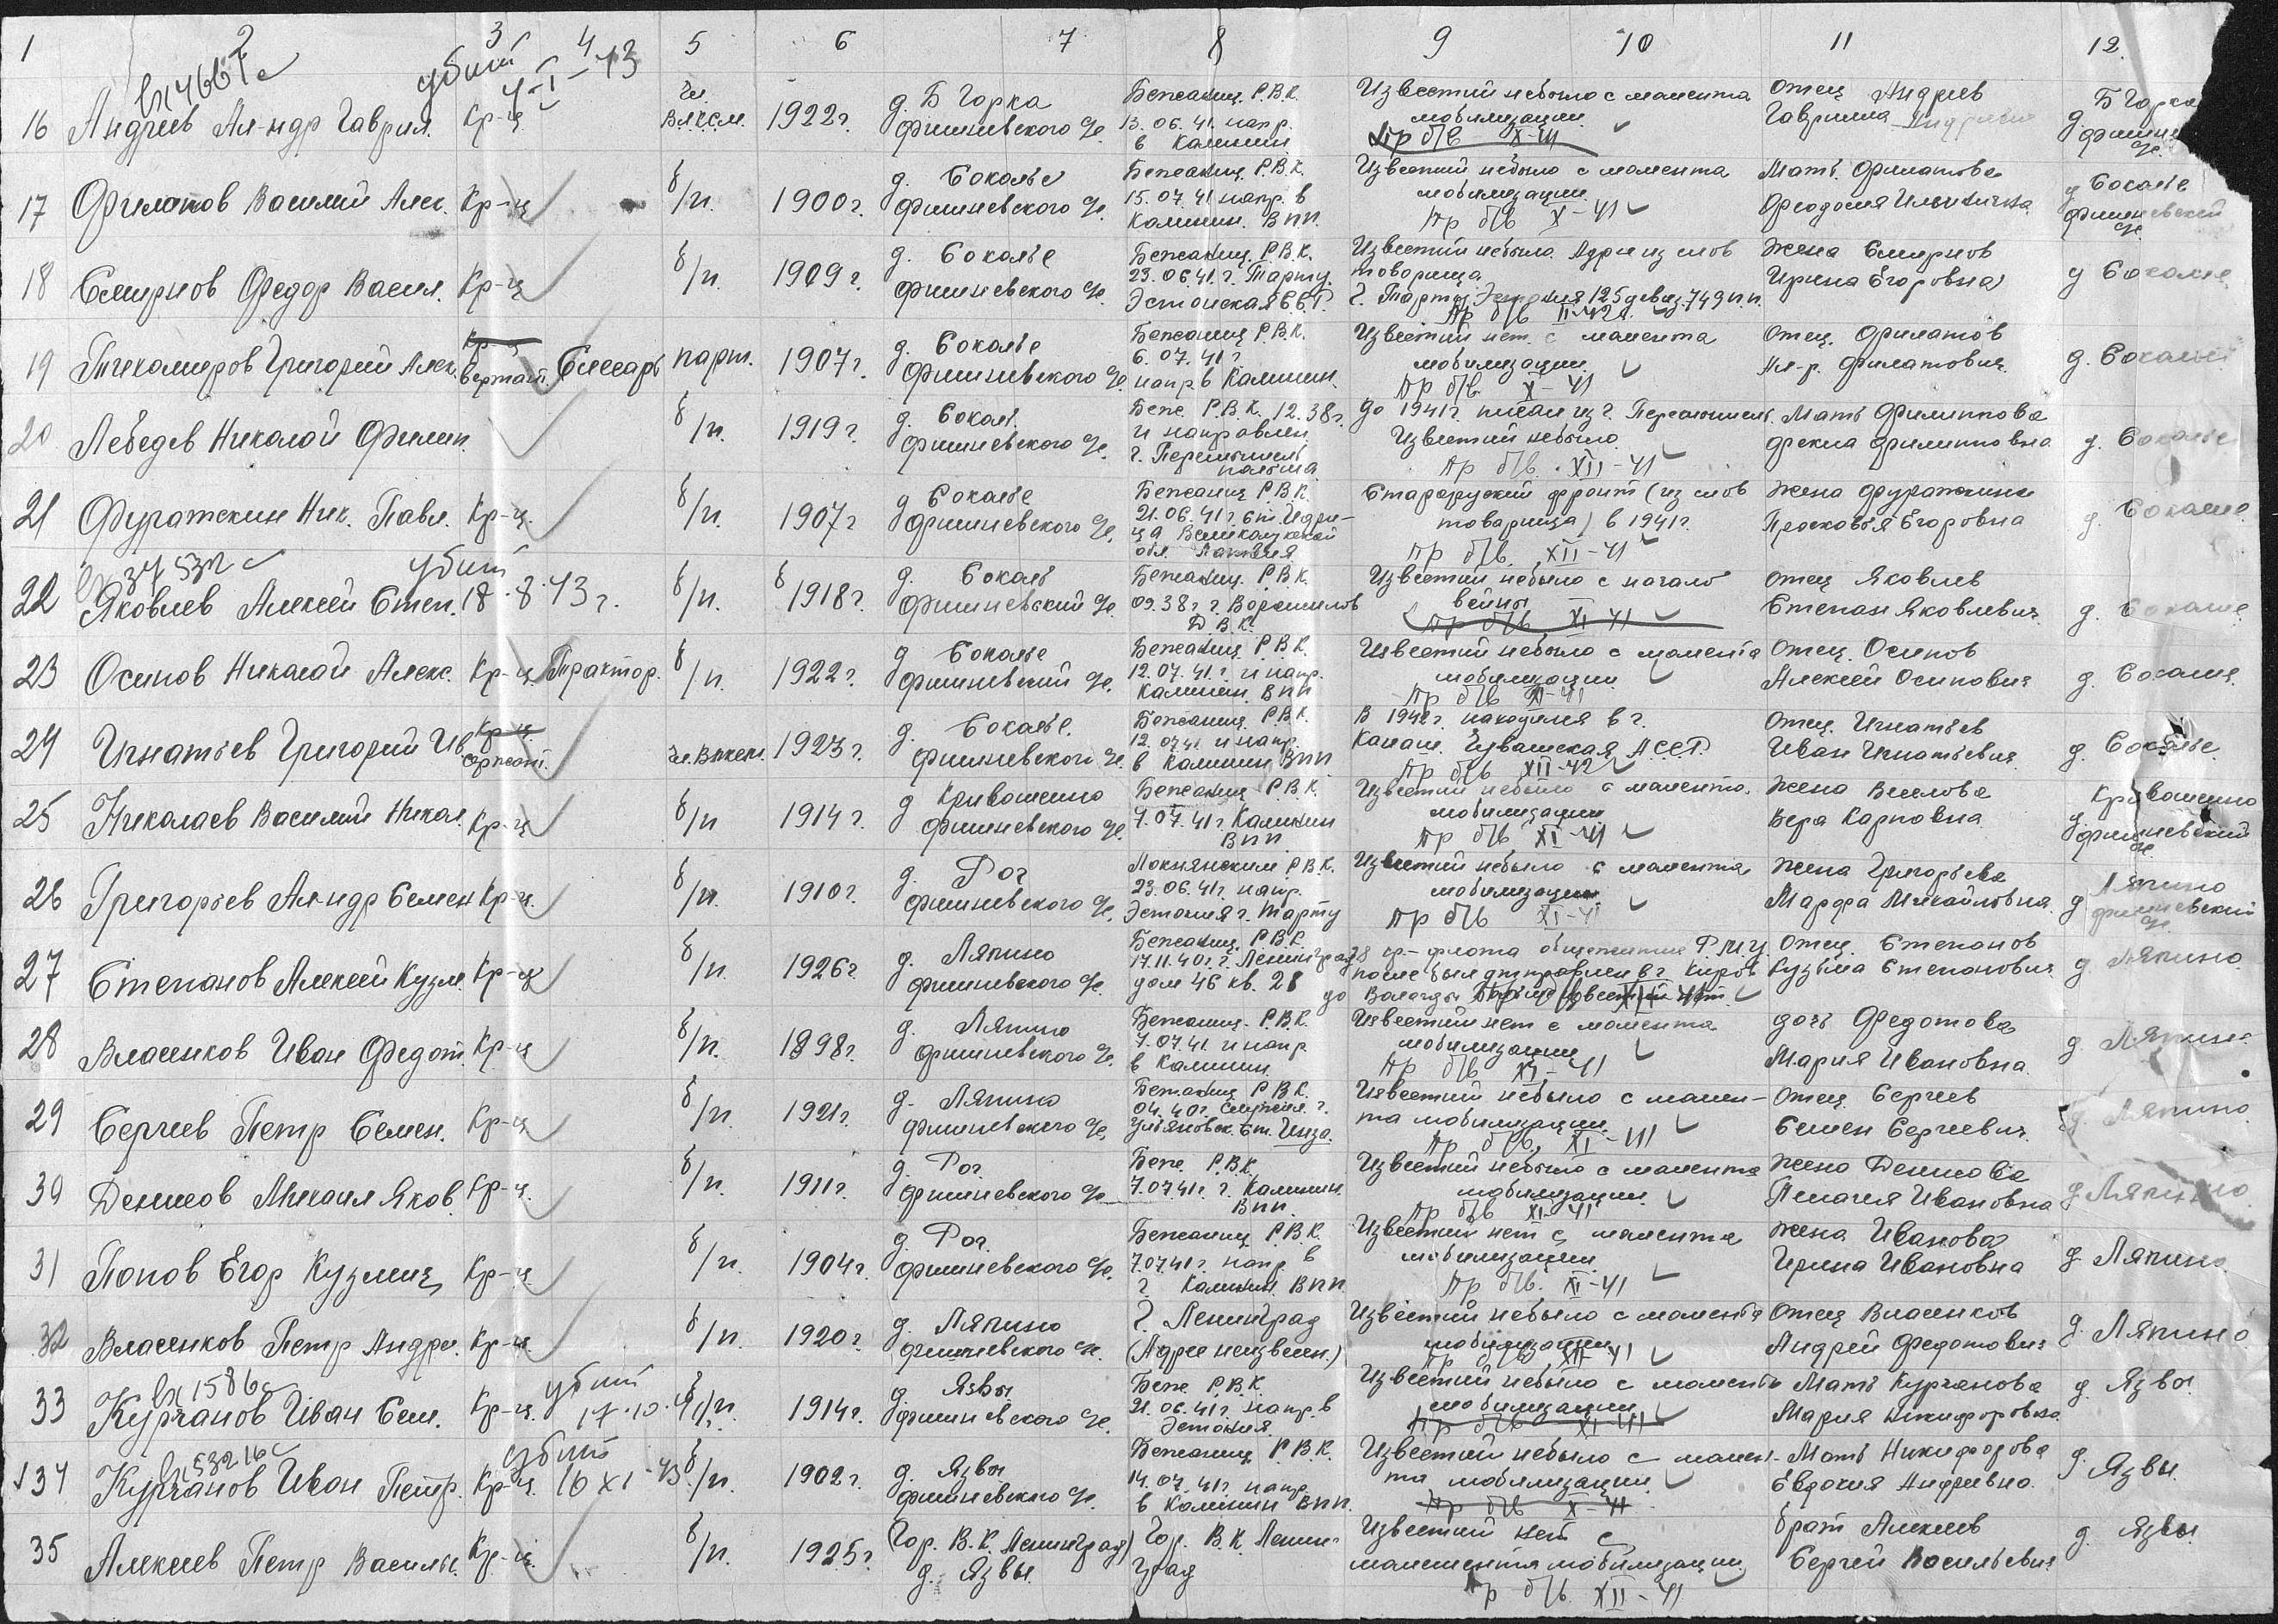 1 2 3 4 5 6 7 8 9 10 11 12.
вх 4667с убит 4-I-43
16 Андреев Ал-ндр Гаврил. Кр-ц чл. ВЛКСМ. 1922г. д. Б Горка Фишневского Бежаниц. Р.В.К. 13.06.41. напр. в Калинин Известий небыло с момента мобилизации. Пр б/в X-41 Отец Андреев Гаврила д. Б Горка
17 Филатов Василий Алек. Кр-ц б/п. 1900г. д. Соколье Фишневского Бежаниц. Р.В.К. 15.07.41 напр. в Калинин. ВПП. Известий небыло с момента мобилизации. Пр б/в X-41 Мать Филатова Феодосия д. Соколье Фишневский
18 Смирнов Федор Васил. Кр-ц б/п. 1909г. д. Соколье Фишневского Бежаниц. Р.В.К. 23.06.41.г. Тарту. Эстонская С.С.Р. Известий небыло. Адрес из слов товарища. г. Тарту. Эстония 125 дивиз. 749 п.п. Пр б/в II-42г. Жена Смирнов Ирина Егоровна д Соколье
19 Тихомиров Григорий Алек. Кр-ц Сержант. Слесарь парт. 1907г. д. Соколье Фишневского Бежаниц Р.В.К. 6.07.41г. напр в Калинин. Известий нет с момента мобилизации. Пр б/в. X-41 Отец. Филатов Ал-р. Филатович. д. Соколье
20 Лебедев Николай Филип. б/п. 1919г. д. Соколь. Фишневского Беже. Р.В.К. 12.38г. и направлен г. Перемышель польша До 1941г. писал из г. Перемышель. Известий небыло. Пр б/в. XII-41 Мать Филиппова Фекла Филипповна д. Соколье
21 Фуражкин Ник. Павл. Кр-ц. б/п. 1907г д Соколье Фишневского Бежаниц Р.В.К. 21.06.41г. ст. Идрица Великолукской обл. Латвия Старорусский фронт (из слов товарища) в 1941г. Пр б/в. XII-41 Жена Фуражкина Прасковья Егоровна д. Соколье
вх 37532с убит
22 Яковлев Алексей Степ. 18.8.43г. б/п. 1918г. д. Соколь Фишневский Бежаниц. Р.В.К. 09.38г г. Ворошилов Д.В.К. Известий небыло с начало войны Пр б/в XI-41 Отец Яковлев Степан Яковлевич д. Соколье
23 Осипов Николай Алекс. Кр-ц. Трактор. б/п. 1922г. д Соколье Фишневский Бежаниц. Р.В.К. 12.07.41.г. и напр. Калинин. ВПП Известий небыло с момента мобилизации. Пр б/в XI-41 Отец. Осипов Алексей Осипович д. Соколье
24 Игнатьев Григорий Ив Кр-ц сержант. чл. ВЛКСМ. 1923г. д. Соколье. Фишневского Бежаниц. Р.В.К. 12.07.41 и напр. в Калинин ВПП В 1942г. находился в г. Канаш. Чувашская АССР. Пр б/в XII-42 Отец. Игнатьев Иван Игнатьевич. д. Соколье.
25 Николаев Василий Никол. Кр-ц б/п 1914г. д Кривошеино Фишневского Бежаниц Р.В.К. 7.07.41г. Калинин ВПП Известий небыло с момента. мобилизации. Пр б/в XI-41 Жена Веслова Вера Карповна д. Кривошеино Фишневский
26 Григорьев Ал-ндр Семен Кр-ц. б/п. 1910г. д. Рог Фишневского Локнянским Р.В.К. 23.06.41г. напр. Эстония г. Тарту Известий небыло с момента мобилизации. Пр б/в XI-41 Жена Григорьева Марфа Михайловна. д Ляпино Фишневский
27 Степанов Алексей Кузм. Кр-ц б/п. 1926г д. Ляпино Фишневского Бежаниц. Р.В.К. 17.11.40г. г. Ленинград дом 46 кв. 28 кр-флота общежитие Р.М.У. после был отправлен в г. Киров до Вологды Отец. Степанов Кузьма Степанович. д. Ляпино.
28 Власенков Иван Федот. Кр-ц б/п. 1898г. д. Ляпино Фишневского Бежаниц. Р.В.К. 7.07.41. и напр в Калинин. Известий нет с момента мобилизации Пр б/в XI-41 дочь Федотова Мария Ивановна. д. Ляпино
29 Сергеев Петр Семен. Кр-ц б/п. 1921г. д. Ляпино Фишневского Бежаниц Р.В.К. 04.40г. Служил г. Ульяновск. Ст. Инза. Известий небыло с момента мобилизации. Пр б/в, XI-41 Отец. Сергеев Семен Сергеевич. д. Ляпино
30 Денисов Михаил Яков. Кр-ц. б/п. 1911г. д. Рог. Фишневского Беже. Р.В.К. 7.07.41г. г. Калинин. ВПП. Известий небыло с момента мобилизации. Пр б/в XI-41 Жена Денисова Пелагия Ивановна д. Ляпино
31 Попов Егор Кузмич Кр-ц. б/п. 1904г. д. Рог. Фишневского Бежаниц Р.В.К. 7.07.41г. напр. в г. Калинин. ВПП. Известий нет с момента мобилизации. Пр б/в. XI-41 Жена Иванова Ирина Ивановна д. Ляпино.
32 Власенков Петр Андре. Кр-ц. б/п. 1920г. д. Ляпино Фишневского г. Ленинград (Адрес неизвесен.) Известий небыло с момента мобилизации Пр б/в XII-41 Отец Власенков Андрей Федотович д. Ляпино
вх 1586с убит
33 Курчанов Иван Сем. Кр-ц. 17.10.41 б/п. 1914г. д. Язвы Фишневского Беже. Р.В.К. 21.06.41г. напр. в Эстония. Известий небыло с момента мобилизации Пр б/в XI-41 Мать Курчанова Мария Никифоровна д. Язвы.
вх 53216с убит
34 Курчанов Иван Петр. Кр-ц. 16 XI-43 б/п. 1902г. д. Язвы Фишневского Бежаниц. Р.В.К. 14.07.41г. напр. в Калинин ВПП. Известий небыло с момента мобилизации. Пр б/в X-41 Мать Никифорова Евдокия Андреевна. д. Язвы.
35 Алексеев Петр Василь. Кр-ц. б/п. 1925г. (Гор. В.К. Ленинград) д. Язвы. Гор. В.К. Ленинград Известий нет с момемента мобилизации. Пр б/в. XII-41 брат Алексеев Сергей Васильевич д. Язвы.